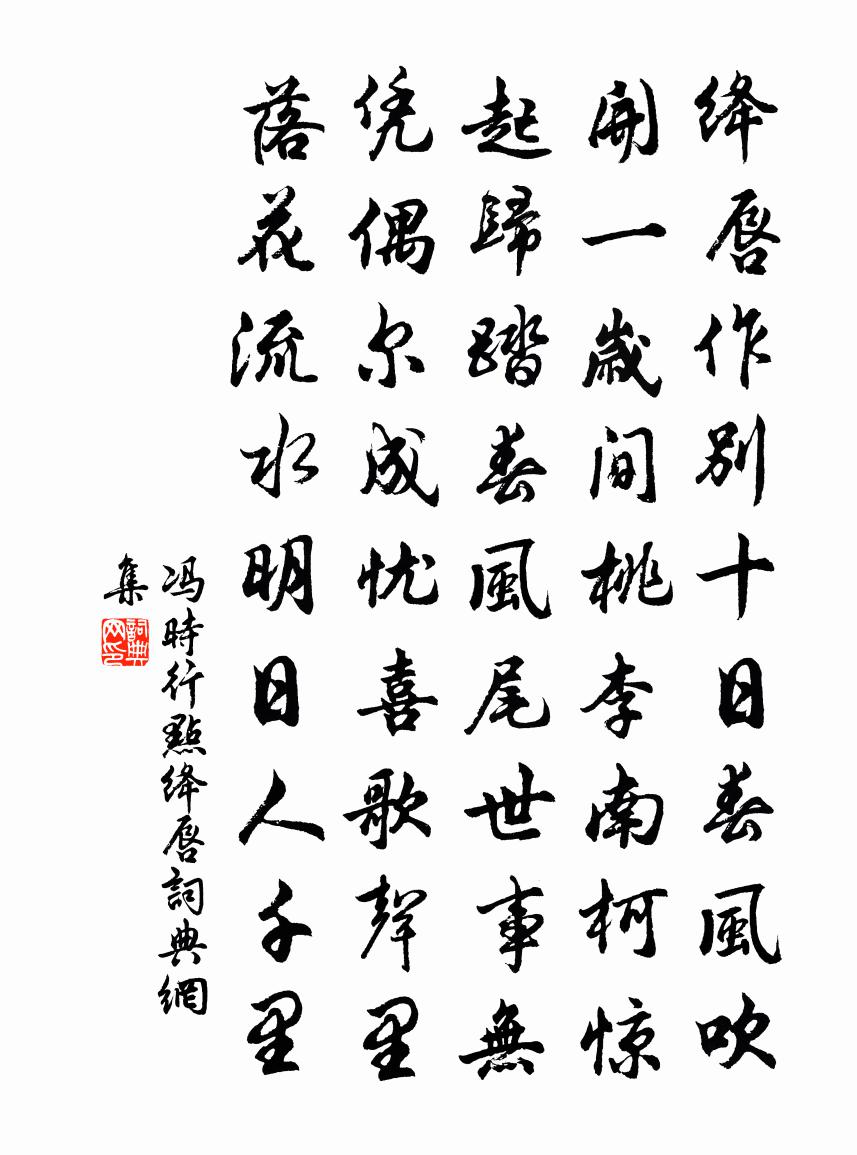 绛唇作别十日春風吹
開一歲间桃李南柯惊
起歸踏春風尾世事無
凭偶尔成忧喜歌聲里
落花流水明日人千里
冯時行點绛唇詞典網
集
詞典
网印